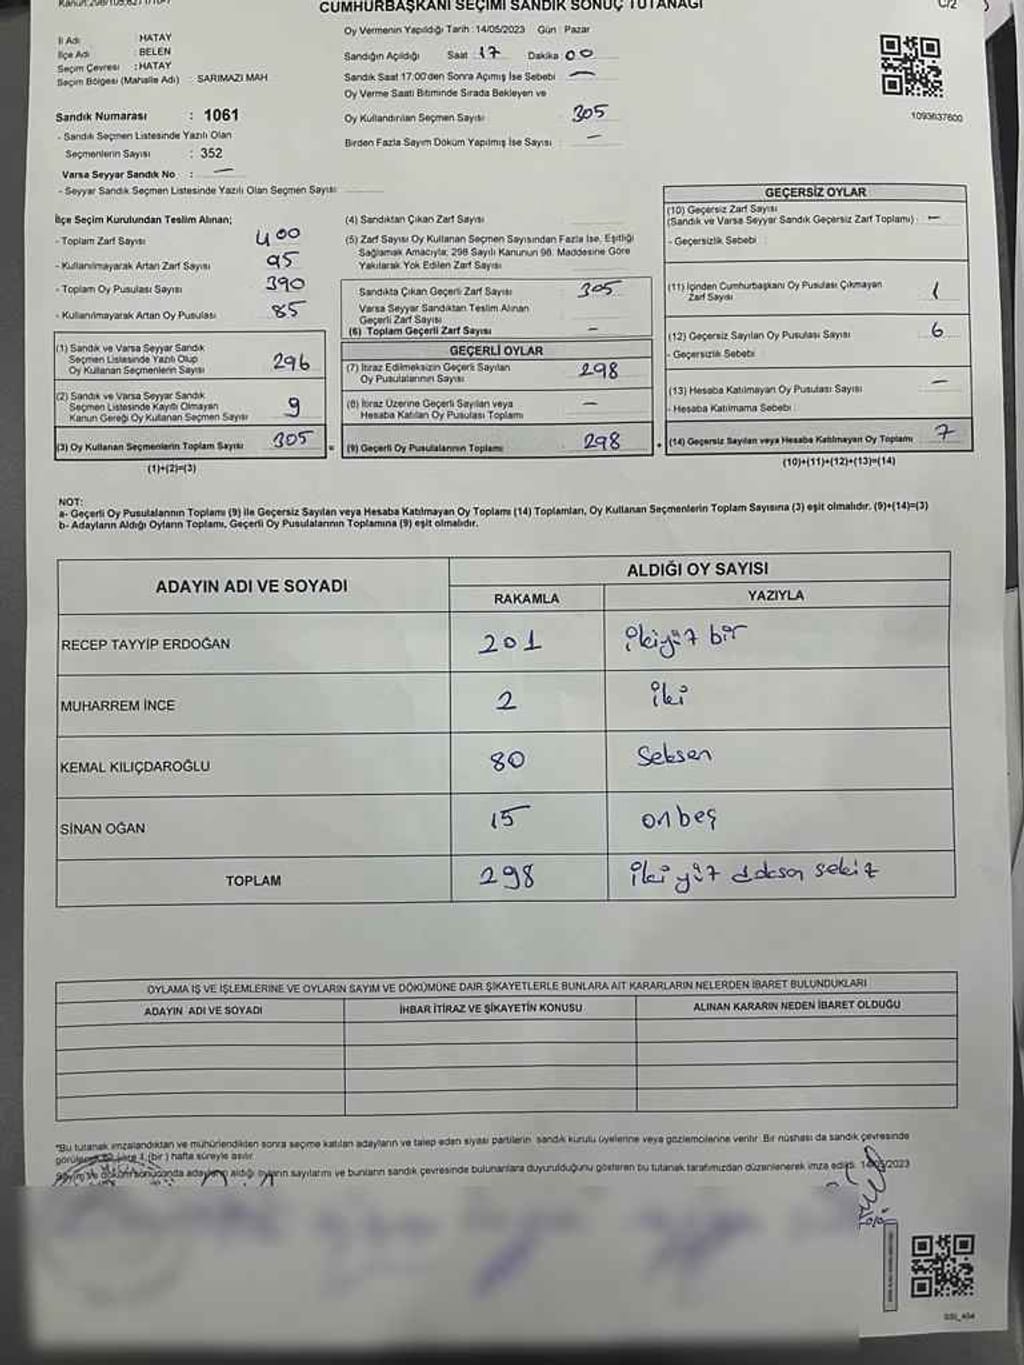 CUMHURBAŞKANI SEÇİMİ SANDIK SONUÇ TUTANAĞI
C/2
İl Adı : HATAY
İlçe Adı : BELEN
Seçim Çevresi : HATAY
Seçim Bölgesi (Mahalle Adı) : SARIMAZI MAH
Sandık Numarası : 1061
- Sandık Seçmen Listesinde Yazılı Olan
Seçmenlerin Sayısı : 352
Varsa Seyyar Sandık No : —
- Seyyar Sandık Seçmen Listesinde Yazılı Olan Seçmen Sayısı
Oy Vermenin Yapıldığı Tarih : 14/05/2023 Gün : Pazar
Sandığın Açıldığı Saat 17 Dakika 00
Sandık Saat 17:00'den Sonra Açımış İse Sebebi —
Oy Verme Saati Bitiminde Sırada Bekleyen ve
Oy Kullandırılan Seçmen Sayısı 305
Birden Fazla Sayım Döküm Yapılmış İse Sayısı : —
1093637600
İlçe Seçim Kurulundan Teslim Alınan;
- Toplam Zarf Sayısı 400
- Kullanılmayarak Artan Zarf Sayısı 95
- Toplam Oy Pusulası Sayısı 390
- Kullanılmayarak Artan Oy Pusulası 85
(1) Sandık ve Varsa Seyyar Sandık
Seçmen Listesinde Yazılı Olup
Oy Kullanan Seçmenlerin Sayısı 296
(2) Sandık ve Varsa Seyyar Sandık
Seçmen Listesinde Kayıtlı Olmayan
Kanun Gereği Oy Kullanan Seçmen Sayısı 9
(3) Oy Kullanan Seçmenlerin Toplam Sayısı 305
(1)+(2)=(3)
(4) Sandıktan Çıkan Zarf Sayısı
(5) Zarf Sayısı Oy Kullanan Seçmen Sayısından Fazla İse, Eşitliği
Sağlamak Amacıyla; 298 Sayılı Kanunun 98. Maddesine Göre
Yakılarak Yok Edilen Zarf Sayısı
Sandıkta Çıkan Geçerli Zarf Sayısı 305
Varsa Seyyar Sandıktan Teslim Alınan
Geçerli Zarf Sayısı
(6) Toplam Geçerli Zarf Sayısı —
GEÇERLİ OYLAR
(7) İtiraz Edilmeksizin Geçerli Sayılan
Oy Pusulalarının Sayısı 298
(8) İtiraz Üzerine Geçerli Sayılan veya
Hesaba Katılan Oy Pusulası Toplamı —
= (9) Geçerli Oy Pusulalarının Toplamı 298
GEÇERSİZ OYLAR
(10) Geçersiz Zarf Sayısı
(Sandık ve Varsa Seyyar Sandık Geçersiz Zarf Toplamı) : —
- Geçersizlik Sebebi :
(11) İçinden Cumhurbaşkanı Oy Pusulası Çıkmayan
Zarf Sayısı 1
(12) Geçersiz Sayılan Oy Pusulası Sayısı 6
- Geçersizlik Sebebi
(13) Hesaba Katılmayan Oy Pusulası Sayısı —
- Hesaba Katılmama Sebebi
+ (14) Geçersiz Sayılan veya Hesaba Katılmayan Oy Toplamı 7
(10)+(11)+(12)+(13)=(14)
NOT:
a- Geçerli Oy Pusulalarının Toplamı (9) ile Geçersiz Sayılan veya Hesaba Katılmayan Oy Toplamı (14) Toplamları, Oy Kullanan Seçmenlerin Toplam Sayısına (3) eşit olmalıdır. (9)+(14)=(3)
b- Adayların Aldığı Oyların Toplamı, Geçerli Oy Pusulalarının Toplamına (9) eşit olmalıdır.
ADAYIN ADI VE SOYADI
ALDIĞI OY SAYISI
RAKAMLA YAZIYLA
RECEP TAYYİP ERDOĞAN 201 ikiyüz bir
MUHARREM İNCE 2 iki
KEMAL KILIÇDAROĞLU 80 Seksen
SİNAN OĞAN 15 onbeş
TOPLAM 298 iki yüz doksan sekiz
OYLAMA İŞ VE İŞLEMLERİNE VE OYLARIN SAYIM VE DÖKÜMÜNE DAİR ŞİKAYETLERLE BUNLARA AİT KARARLARIN NELERDEN İBARET BULUNDUKLARI
ADAYIN ADI VE SOYADI İHBAR İTİRAZ VE ŞİKAYETİN KONUSU ALINAN KARARIN NEDEN İBARET OLDUĞU
*Bu tutanak imzalandıktan ve mühürlendikten sonra seçime katılan adayların ve talep eden siyasi partilerin sandık kurulu üyelerine veya gözlemcilerine verilir. Bir nüshası da sandık çevresinde
1 (bir) hafta süreyle asılır.
sonucunda adayların aldığı oyların sayılarını ve bunların sandık çevresinde bulunanlara duyurulduğunu gösteren bu tutanak tarafımızdan düzenlenerek imza edildi. 14/05/2023